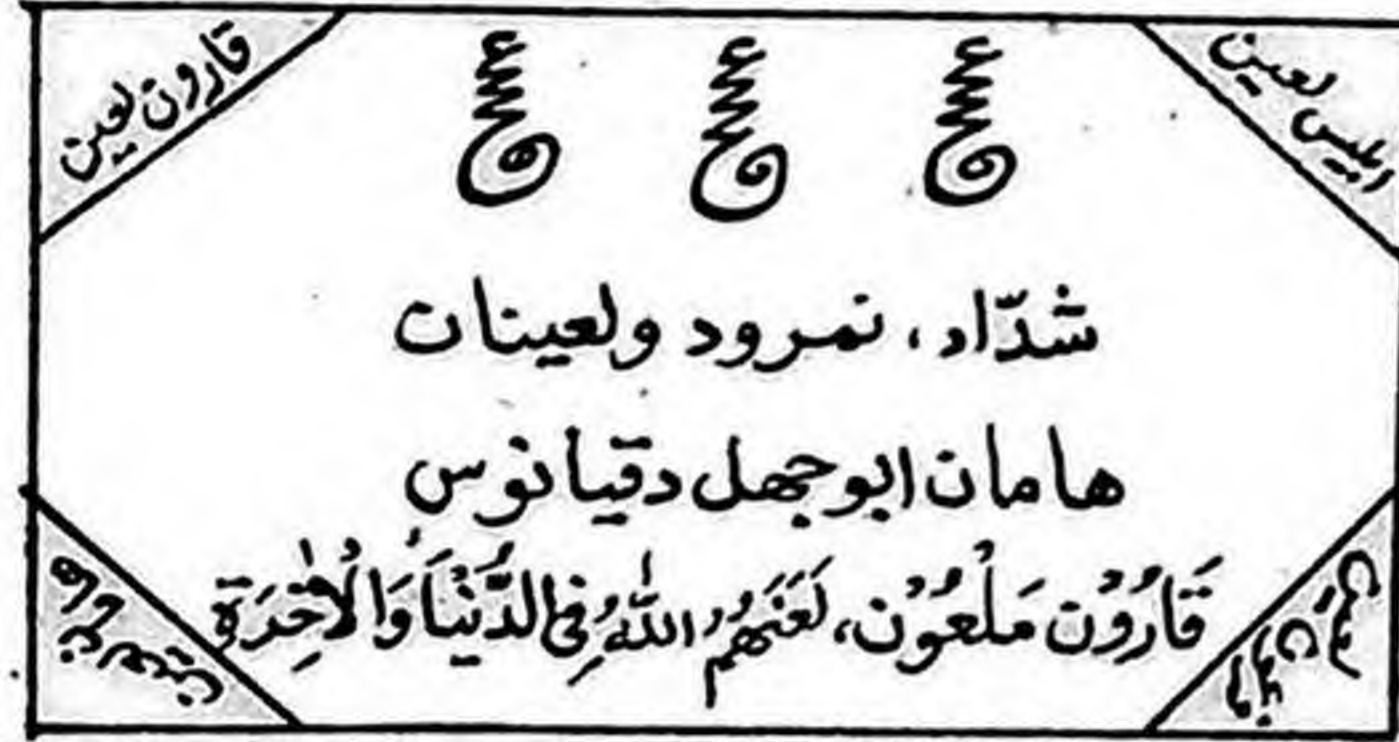 ابلیس لعین
قارون لعین
ع ع ع
شدّاد، نمرود ولعینان
هامان ابوجهل دقیانوس
قَارُوْن مَلْعُوْن، لَعَنَهُمُ اللّٰهُ فِی الدُّنْیَا وَالْاٰخِرَةِ
هامان لعین